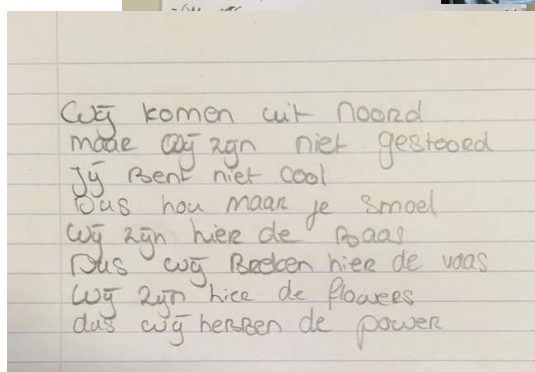 Wij komen uit Noord
maar wij zijn niet gestoord
Jij Bent niet cool
Dus hou maar je smoel
Wij zijn hier de Baas
Dus wij Breken hier de vaas
Wij zijn hier de flowers
dus wij hebben de power